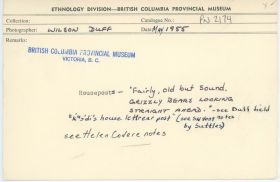 ETHNOLOGY DIVISION—BRITISH COLUMBIA PROVINCIAL MUSEUM
Collection: Catalogue No.: PN 2174
Photographer: WILSON DUFF Date: MAY 1955
Remarks:
BRITISH COLUMBIA PROVINCIAL MUSEUM
VICTORIA, B. C.
Houseposts - "Fairly old but sound.
GRIZZLY BEARS LOOKING
STRAIGHT AHEAD." - see Duff field
house post" (see notes
by Suttles)
see Helen Codere notes